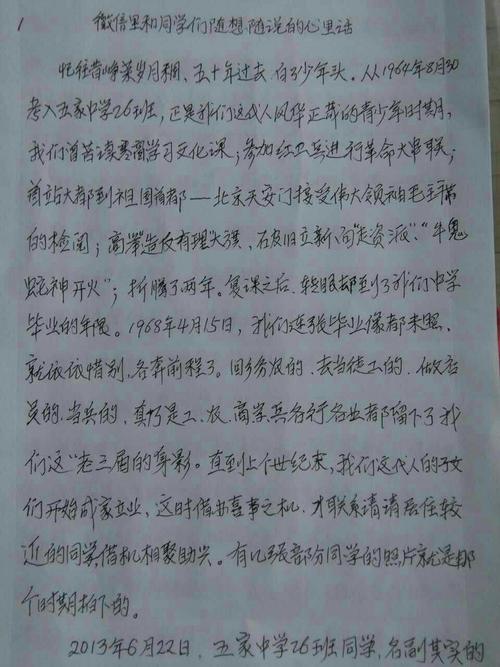 1
微信里和同学们随想随说的心里话
忆往昔峥嵘岁月稠、五十年过去，白了少年头。从1964年8月30
考入五家中学26班，正是我们这代人风华正茂的青少年时期，
我们曾苦读寒窗学习文化课；参加红卫兵进行革命大串联；
首站大都到祖国首都——北京天安门接受伟大领袖毛主席
的检阅；高举"造反有理"大旗、石皮旧立新、向"走资派"、"牛鬼
蛇神开火"；折腾了两年。复课之后、转眼却到了我们中学
毕业的年限。1968年4月15日，我们连张毕业像都未照，
就依依惜别，各奔前程了。回乡务农的、去当徒工的、做店
员的、当兵的、真乃是工、农、商学兵各行各业都留下了我
们这"老三届的身影。直到上个世纪末，我们这代人的子女
们开始成家立业，这时借办喜事之机、才联系请请居住较
近的同学借机相聚助兴。有几张部分同学的照片就是那
个时期拍下的。
2013年6月22日，五家中学26班同学，名副其实的